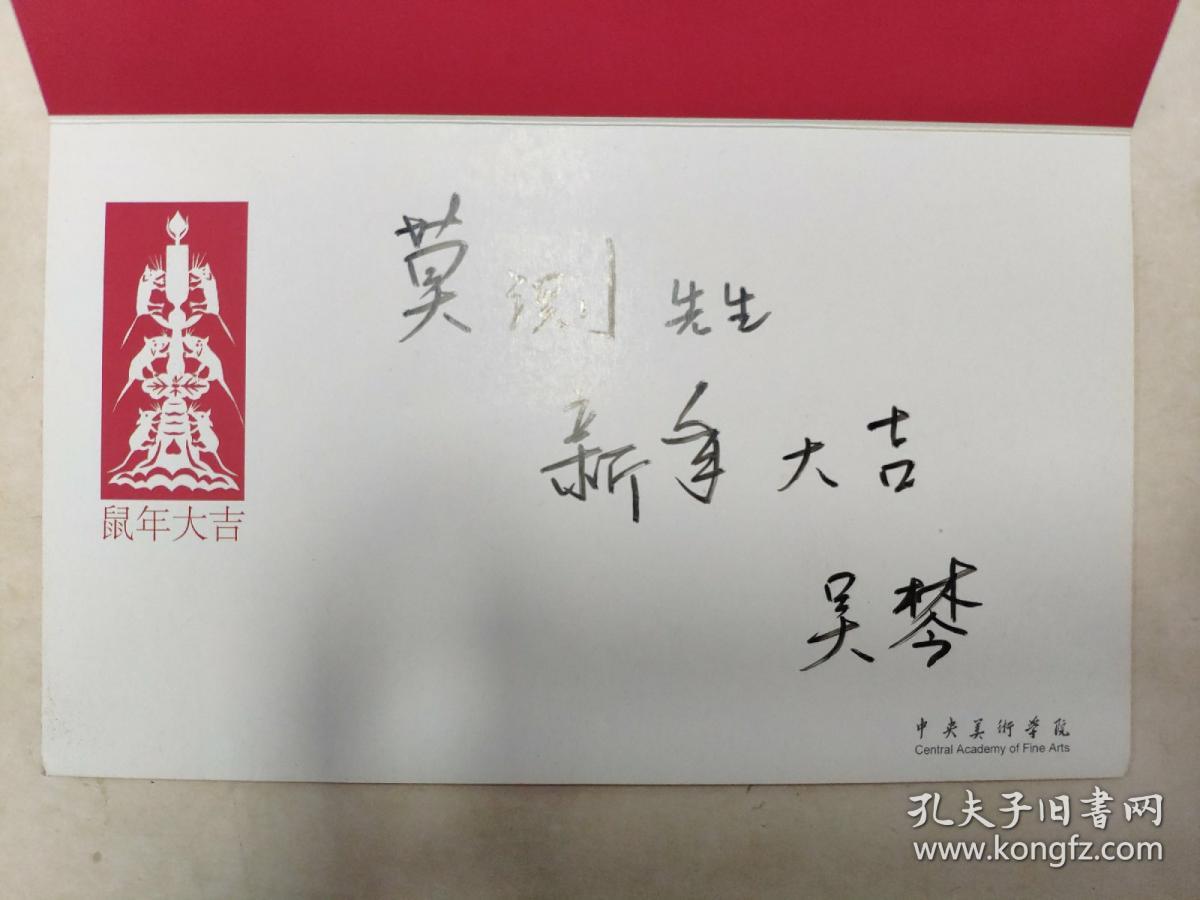 莫测先生
新年大吉
吴棽
鼠年大吉
中央美術學院
Central Academy of Fine Arts
孔夫子旧書网
www.kongfz.com